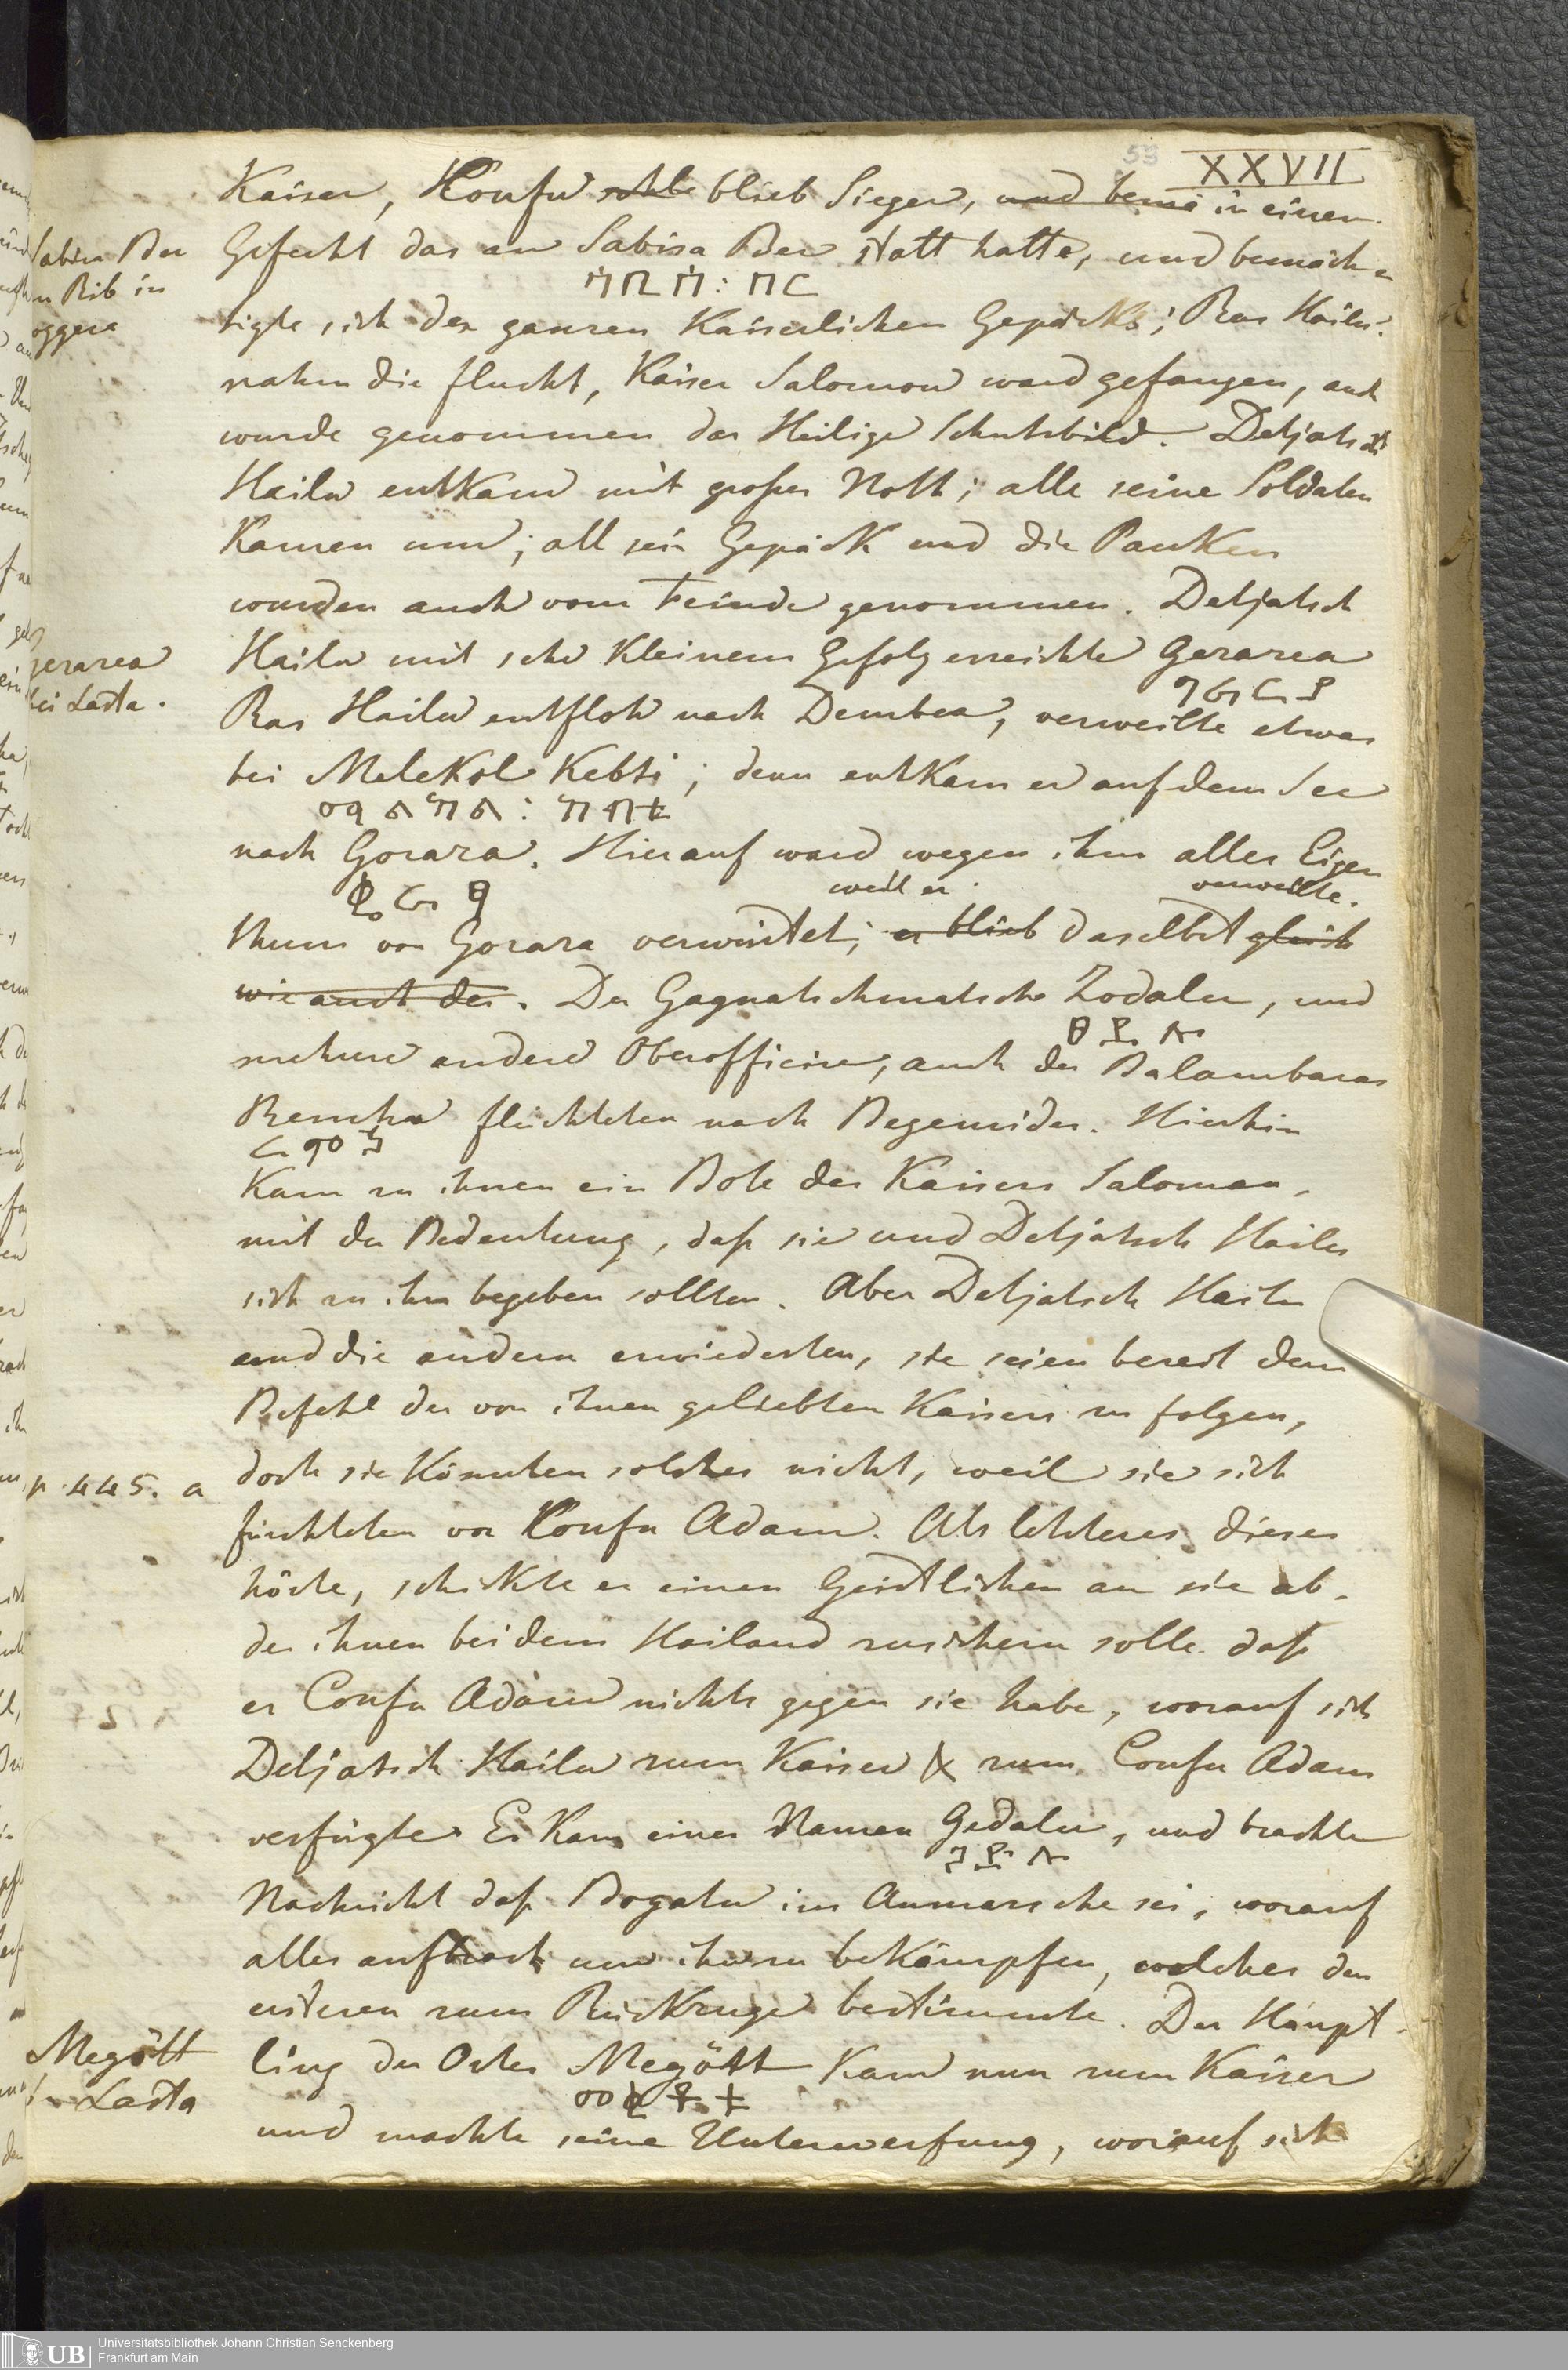 53
XXVII
Kaiser, Konfu blieb Sieger, und bemä in einem
Gefecht das an Sabisa Ber statt hatte, und bemäch-
ሳቢሳ: በር
Sabisa Ber
am Rib in
oggera
tigte sich des ganzen Kaiserlichen Gepäcks; Ras Hailu
nahm die flucht, Kaiser Salomon ward gefangen, auch
wurde genommen das Heilige Schutzbild. Detjatsch
Hailu entkam mit großer Noth; alle seine Soldaten
Kamen um; all sein Gepäck und die Pauken
wurden auch vom Feinde genommen. Detjatsch
Hailu mit sehr Kleinem Gefolg erreichte Gerarea
ገራርያ
Gerarea
bei Lasta.
Ras Hailu entfloh nach Dembea, verweilte etwas
bei MeleKol Kebti; denn entkam er auf dem See
nach Gorara. Hierauf ward wegen ihm alles Eigen
weil er verweilte.
thum von Gorara verwüstet; er blieb daselbst gleich
wie auch der. Der Gagnatschmatsch Zodalu, und
ዘዳሉ
mehrere andere Oberofficire, auch der Balambaras
Remha flüchteten nach Begemider. Hierhin
ራምኃ
Kam zu ihnen ein Bote des Kaisers Saloman,
mit der Bedeutung, daß sie und Detjatsch Hailu
sich zu ihm begeben sollten. Aber Detjatsch Hailu
und die andern erwiederten, sie seien bereit dem
Befehl des von ihnen geliebten Kaisers zu folgen,
p. 445. a
doch sie Könnten solches nicht, weil sie sich
fürchteten vor Konfu Adam. Als letzteres dieser
hörte, schickte er einen Geistlichen an sie ab,
der ihnen bei dem Hailand zusichern solle daß
er Confu Adam nichts gegen sie habe, worauf sich
Detjatsch Hailu zum Kaiser & zum Confu Adam
verfügte. Es Kam einer Namen Gedalu, und brachte
ገዳሉ
Nachricht daß Bogalu im Anmarsche sei, worauf
alles aufbrach um ihn zu bekämpfen, welches den
ersteren zum Rückzuge bestimmte. Der Häupt-
Megött
in Lasta
ling des Ortes Megött Kam nun zum Kaiser
und machte seine Unterwerfung, worauf sich
UB
Universitätsbibliothek Johann Christian Senckenberg
Frankfurt am Main